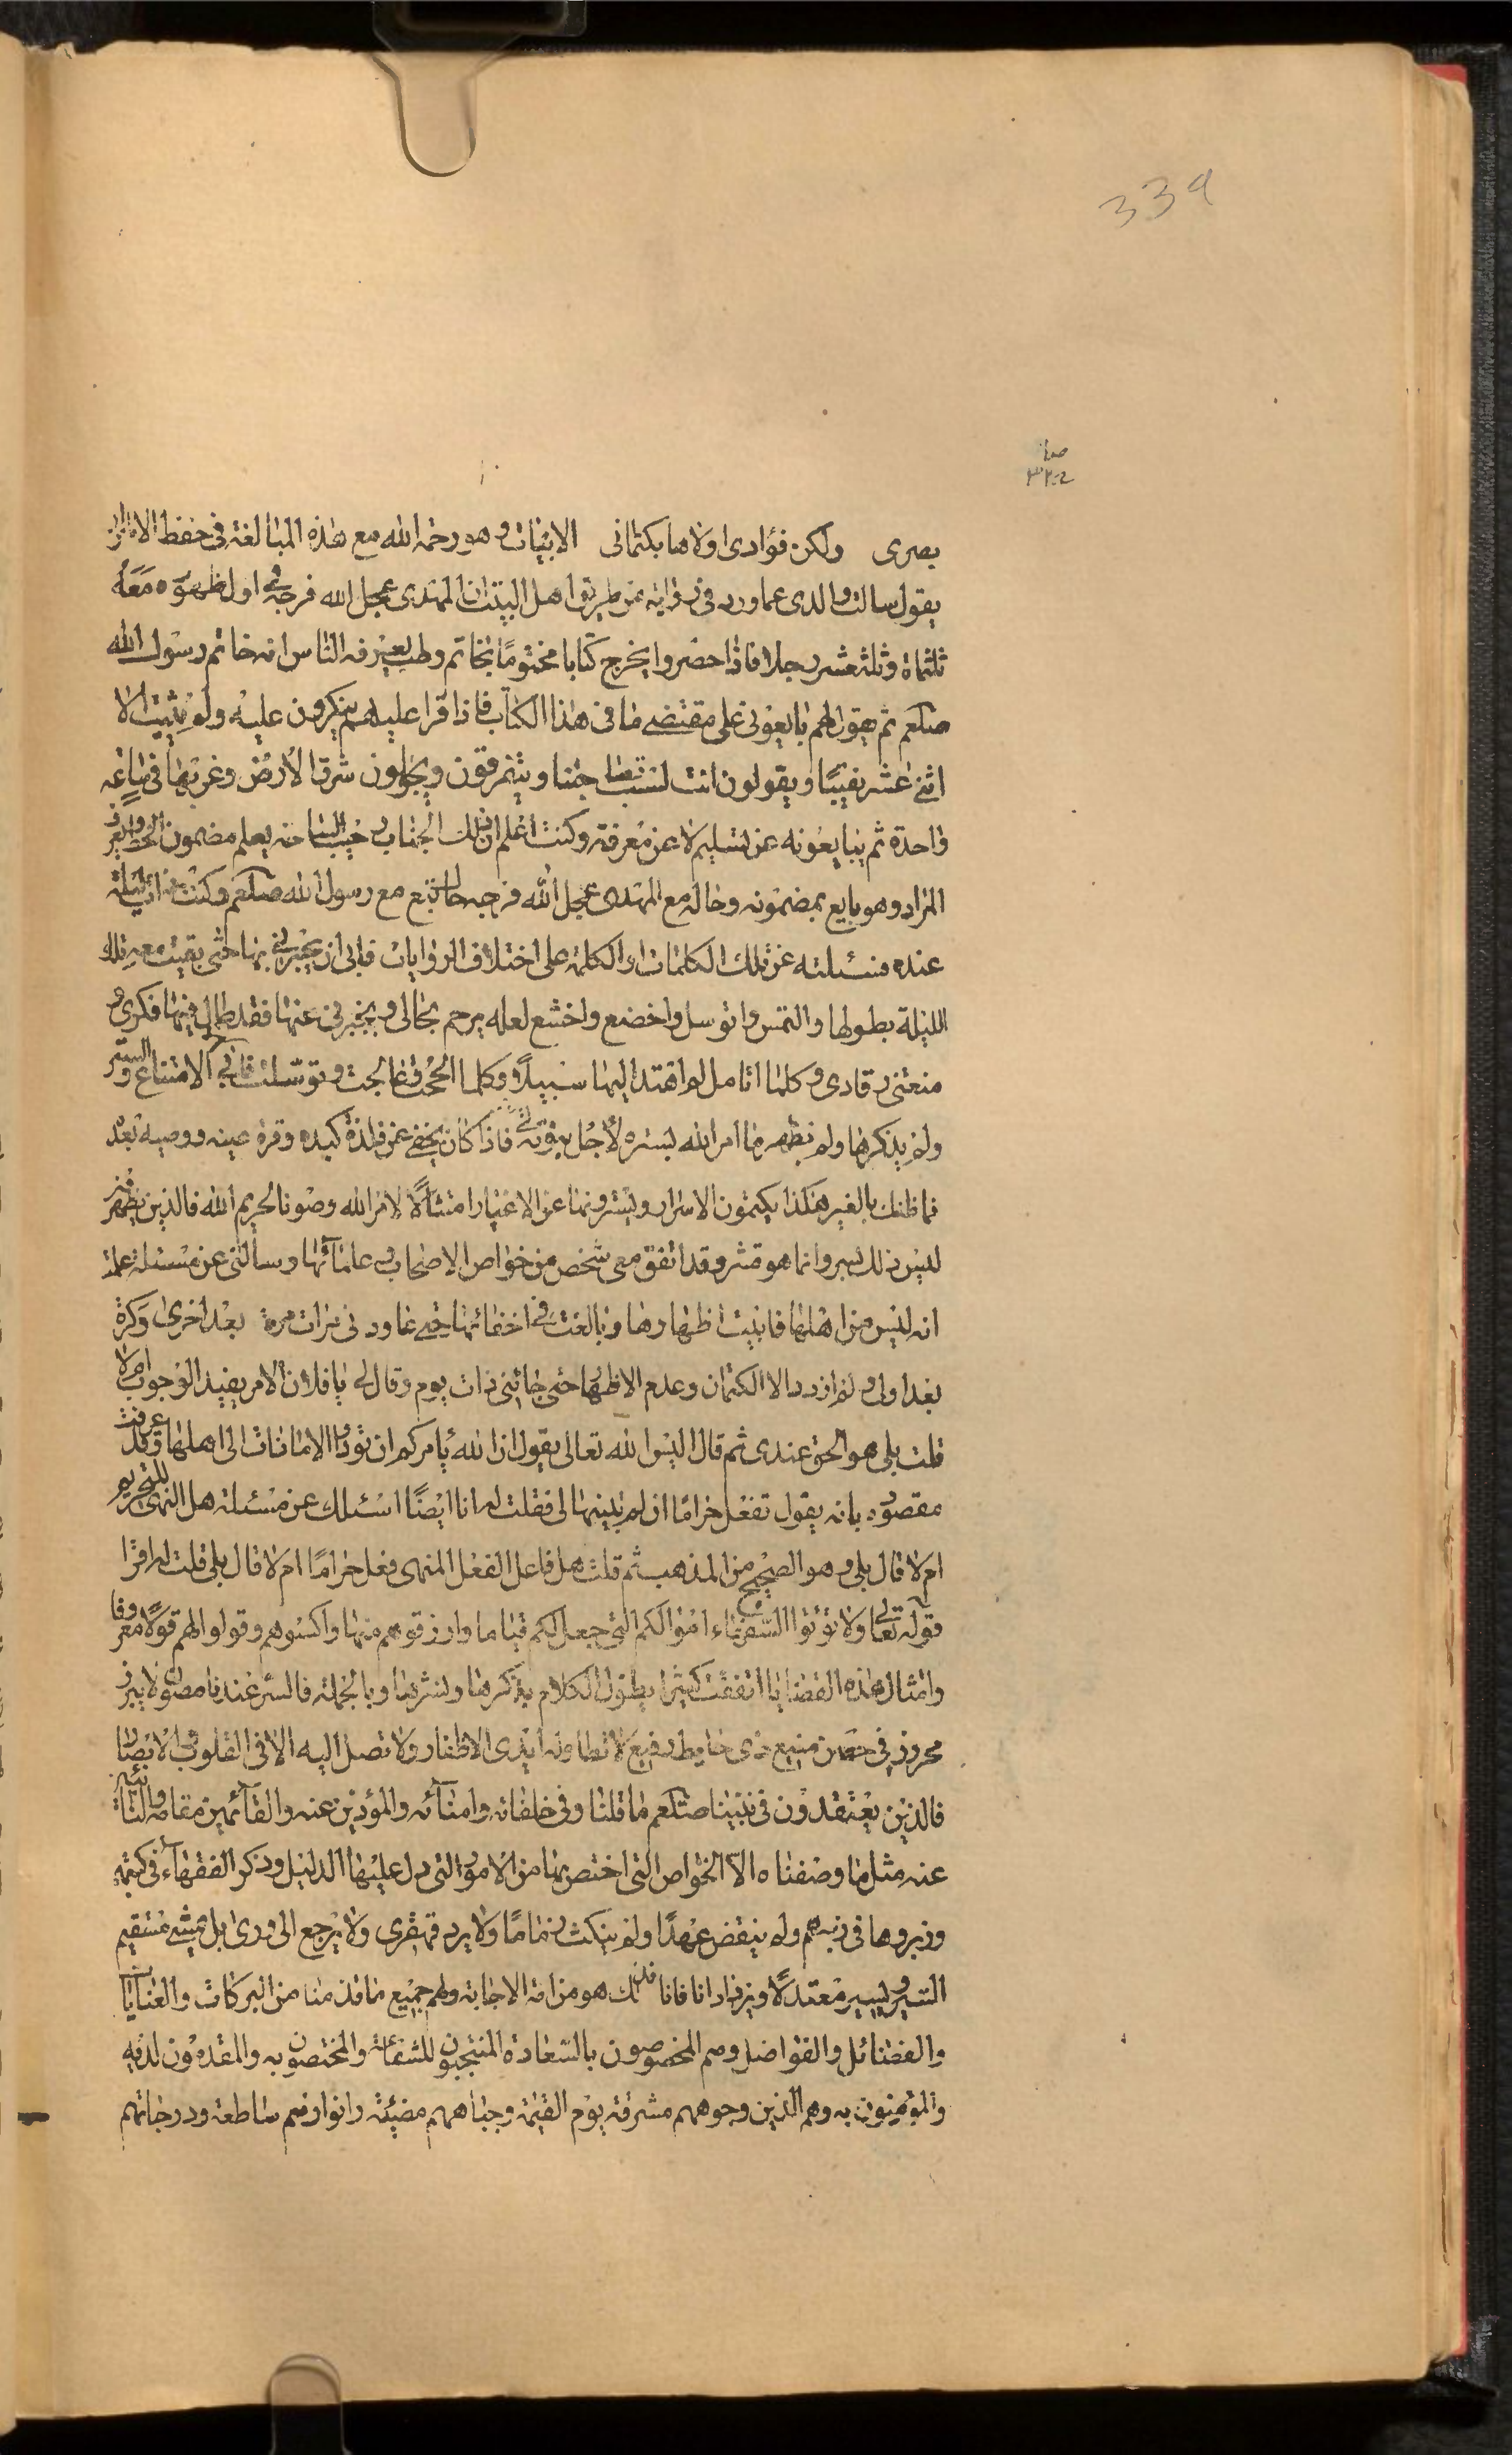 339
بصرى ولكن فؤادى اولاها بكتمانى الابيات وهو رحمه الله مع هذه المبالغة فى حفظ الاسرار
يقول سالت والدى عما ورد فى رواية من طريق اهل البيت ان المهدى عجل الله فرجه فى اول ظهوره معه
ثلثماة وثلثة عشر رجلا فاذا حضروا يخرج كتابا مختوما بخاتم وطب يعرفه الناس انه خاتم رسول الله
صلعم ثم يقول لهم بايعونى على مقتضى ما فى هذا الكتاب فاذا قرا عليهم ينكرون عليه ولم يثبت الا
اثنى عشر نقيبًا ويقولون انت لست بصاحبنا ويتفرقون ويجولون شرق الارض وغربها فى ساعة
واحدة ثم يبايعونه عن تسليم لا عن معرفة وكنت اعلم ان ذلك الجناب يعلم مضمون الخط ويعرف
المراد وهو بايع بمضمونه وحاله مع المهدى عجل الله فرجه مع رسول الله صلعم وكنت ذات ليلة
عنده فسئلته عن تلك الكلمات او الكلمة على اختلاف الروايات فابى ان يخبرنى بها حتى بقيت معه تلك
الليلة بطولها والتمس واتوسل واخضع واخشع لعله يرحم بحالى ويخبرنى عنها فقد طال فيها فكرى و
منعتنى رقادى وكلما اتامل لم اهتد اليها سبيلاً وكلما الححت وعالجت وتوسلت فابى الا الامتناع والستر
ولم يذكرها ولم يظهر ما امر الله بستره لاجل بنوتى فاذا كان يخفى عن فلذة كبده وقرة عينه ووصيه بعده
فما ظنك بالغير هكذا يكتمون الاسرار ويسترونها عن الاغيار امتثالاً لامر الله وصونا لحريم الله فالذين يظهر
ليس ذلك بسر وانما هو قشر وقد اتفق معى شخص من خواص الاصحاب وعلمائها وسالنى عن مسئلة علمت
انه ليس من اهلها فابيت اظهارها وبالغت فى اخفائها حتى عاودنى مرات مرة بعد اخرى وكرة
بعد اولى ولم ازدد الا الكتمان وعدم الاظهار حتى جائنى ذات يوم وقال لى يا فلان الامر يفيد الوجوب ام لا
قلت بلى هو الحق عندى ثم قال اليس الله تعالى يقول ان الله يأمركم ان تؤدوا الامانات الى اهلها وقد عرفت
مقصوده بانه يقول تفعل حرامًا ان لم تبينها لى فقلت له انا ايضًا اسئلك عن مسئلة هل النهى للتحريم
ام لا قال بلى وهو الصحيح من المذهب ثم قلت هل فاعل الفعل المنهى فعل حرامًا ام لا قال بلى قلت له اقرا
قوله تعالى ولا تؤتوا السفهاء اموالكم التى جعل لكم قياما وارزقوهم منها واكسوهم وقولوا لهم قولا معروفا
وامثال هذه القضايا اتفقت كثيرا يطول الكلام بذكرها ونشرها وبالجملة فالسر عندنا مصون لا يبرز
محروز فى حصن منيع ذى حايط رفيع لا تطاوله ايدى الاظفار ولا تصل اليه الا فى القلوب الابصار
فالذين يعتقدون فى نبينا صلعم ما قلنا وفى خلفائه وامنائه والمؤدين عنه والقائمين مقامه والنائبين
عنه مثل ما وصفناه الا الخواص التى اختص بها من الامور التى دل عليها الدليل وذكر الفقهاء فى كتبهم
وزبروها فى زبرهم ولم ينقض عهدًا ولم ينكث ذمامًا ولا يرد قهقرى ولا يرجع الى ورى بل يمشى مستقيم
السير ويسير معتدلاً ويزداد انا فانا فذلك هو من امة الاجابة ولهم جميع ما قدمنا من البركات والعنايات
والفضائل والفواضل وهم المخصوصون بالسعادة المنتجبون للشفاعة والمختصون به والمقدمون لديه
والمؤمنون به وهم الذين وجوههم مشرقة يوم القيمة وجباههم مضيئة وانوارهم ساطعة ودرجاتهم